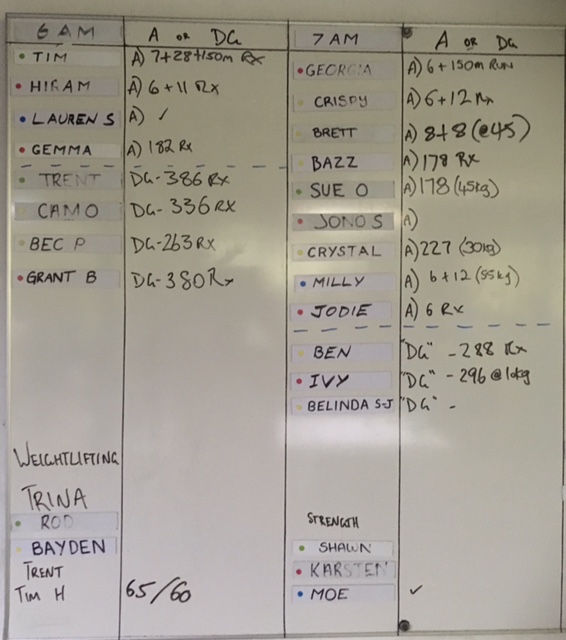 6 AM A OR DG
TIM A) 7+28+150m Rx
HIRAM A) 6+11 Rx
LAUREN S A) ✓
GEMMA A) 182 Rx
TRENT DG-386 RX
CAMO DG-336 RX
BEC P DG-263 RX
GRANT B DG-380 Rx
WEIGHTLIFTING
TRINA
ROD
BAYDEN
TRENT
TIM H 65/60
7 AM A OR DG
GEORGIA A) 6+150m RUN
CRISPY A) 6+12 Rx
BRETT A) 8+8 (@45)
BAZZ A) 178 RX
SUE O A) 178 (45kg)
JONO S A)
CRYSTAL A) 227 (30kg)
MILLY A) 6+12 (55kg)
JODIE A) 6 RX
BEN "DG" - 288 Rx
IVY "DG" - 296 @ 10kg
BELINDA S-J "DG" -
STRENGTH
SHAWN
KARSTEN
MOE ✓